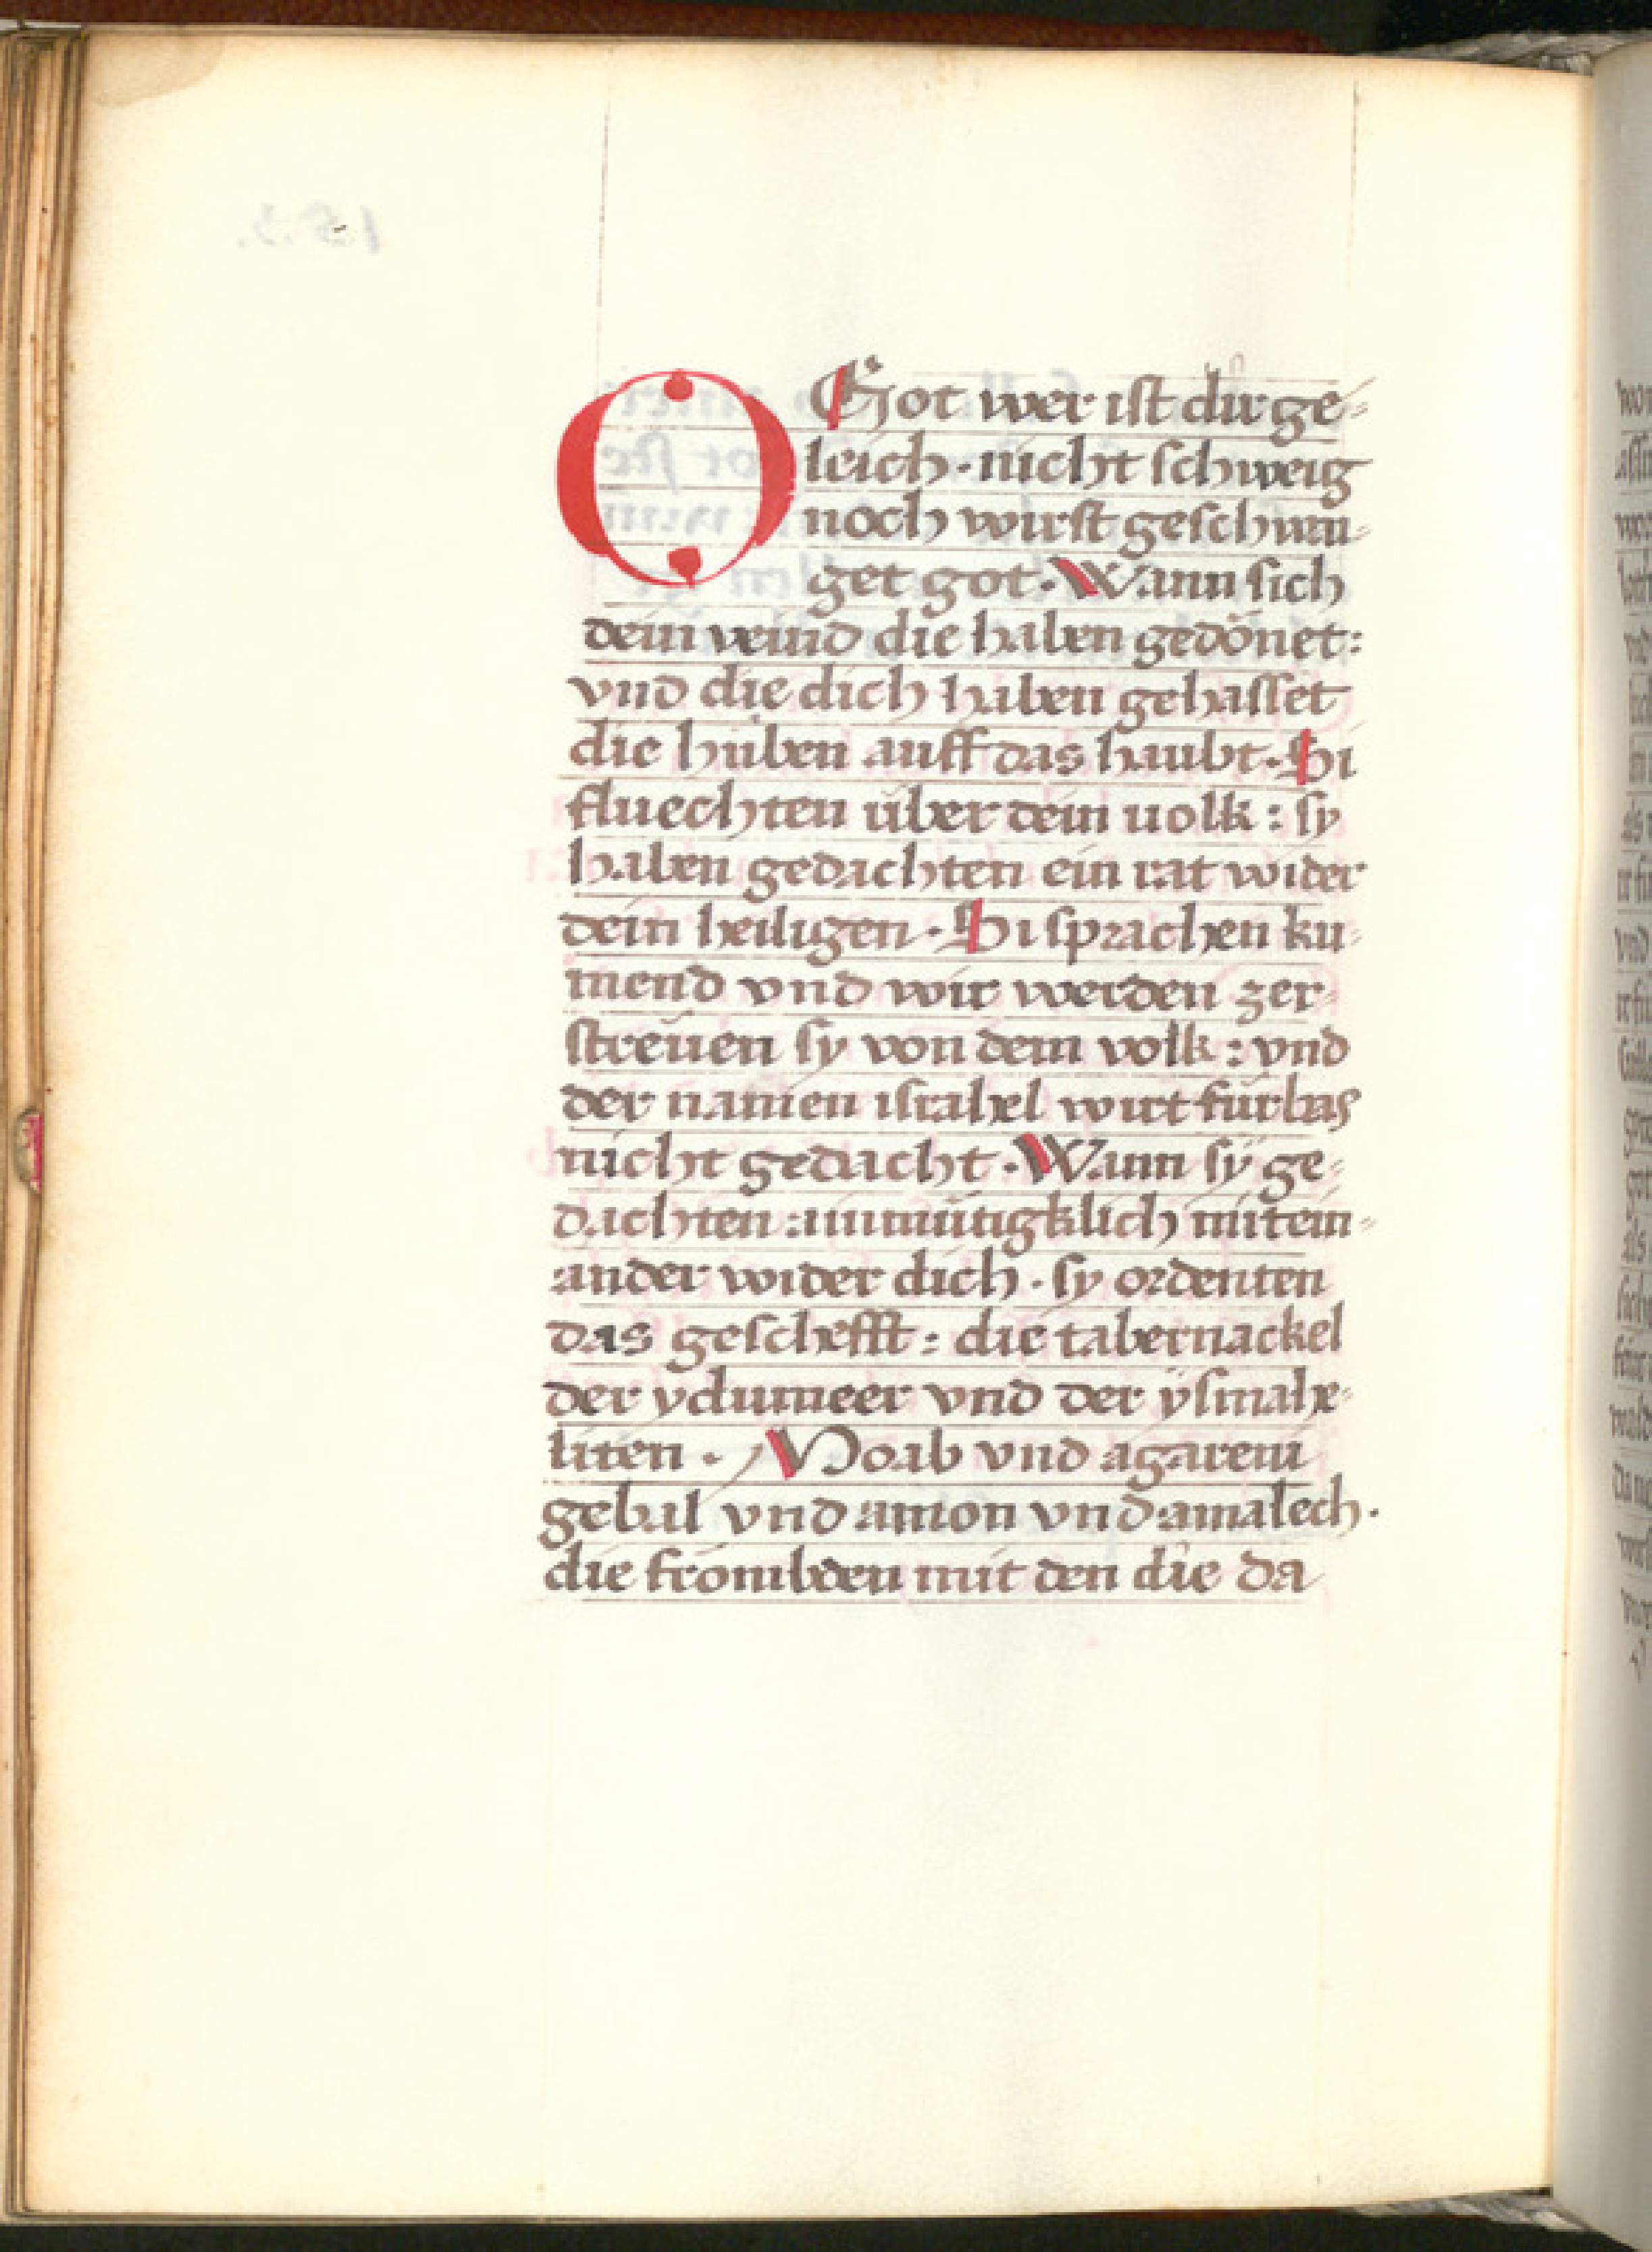 O Got wer ist dir ge=
leich · nicht schweig
noch wirst geschwei=
get got · Wann sich
dein veind die haben gedönet:
vnd die dich haben gehasset
die huben auff das haubt · Si
fluechten über dein uolk : sy
haben gedachten ein rat wider
dein heiligen · Si sprachen ku=
mend vnd wir werden zer=
streüen sy von dem volk : vnd
der namen israhel wirt fürbas
nicht gedacht · Wann sÿ ge=
dachten ainmütigklich mitein=
ander wider dich · sy ordenten
das geschefft : die tabernackel
der ydumeer vnd der ÿsmahe=
liten · Moab vnd agareni
gebal vnd amon vnd amalech ·
die frömbden mit den die da